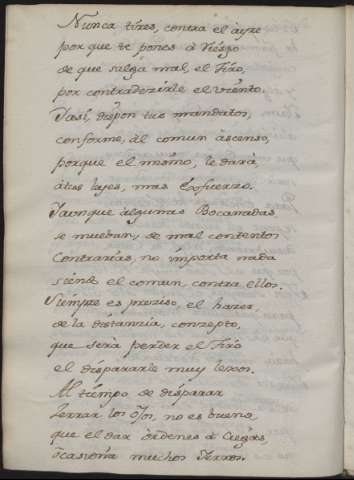 Nunca tires, contra el ayre
por que te pones à riesgo
de que salga mal, el Tiro,
por contradezirle el viento.
Y asi, dispon tus mandatos,
conforme, al comun àscenso,
porque el mismo, le darà,
à tus leyes, mas Esfuerzo.
Y aunque àlgunas Bocanadas,
se muevan, de mal contentos
Contrarias, no importa nada
siendo el comun, contra ellos.
Siempre es preziso, el hazer,
de la distanzia, conzepto,
que serà perder el Tiro
el dispararle muy lexos.
Al tiempo de disparar
Zerrar los ojos, no es bueno,
que el dar òrdenes à Ciegas,
òcasiona muchos Yerros.